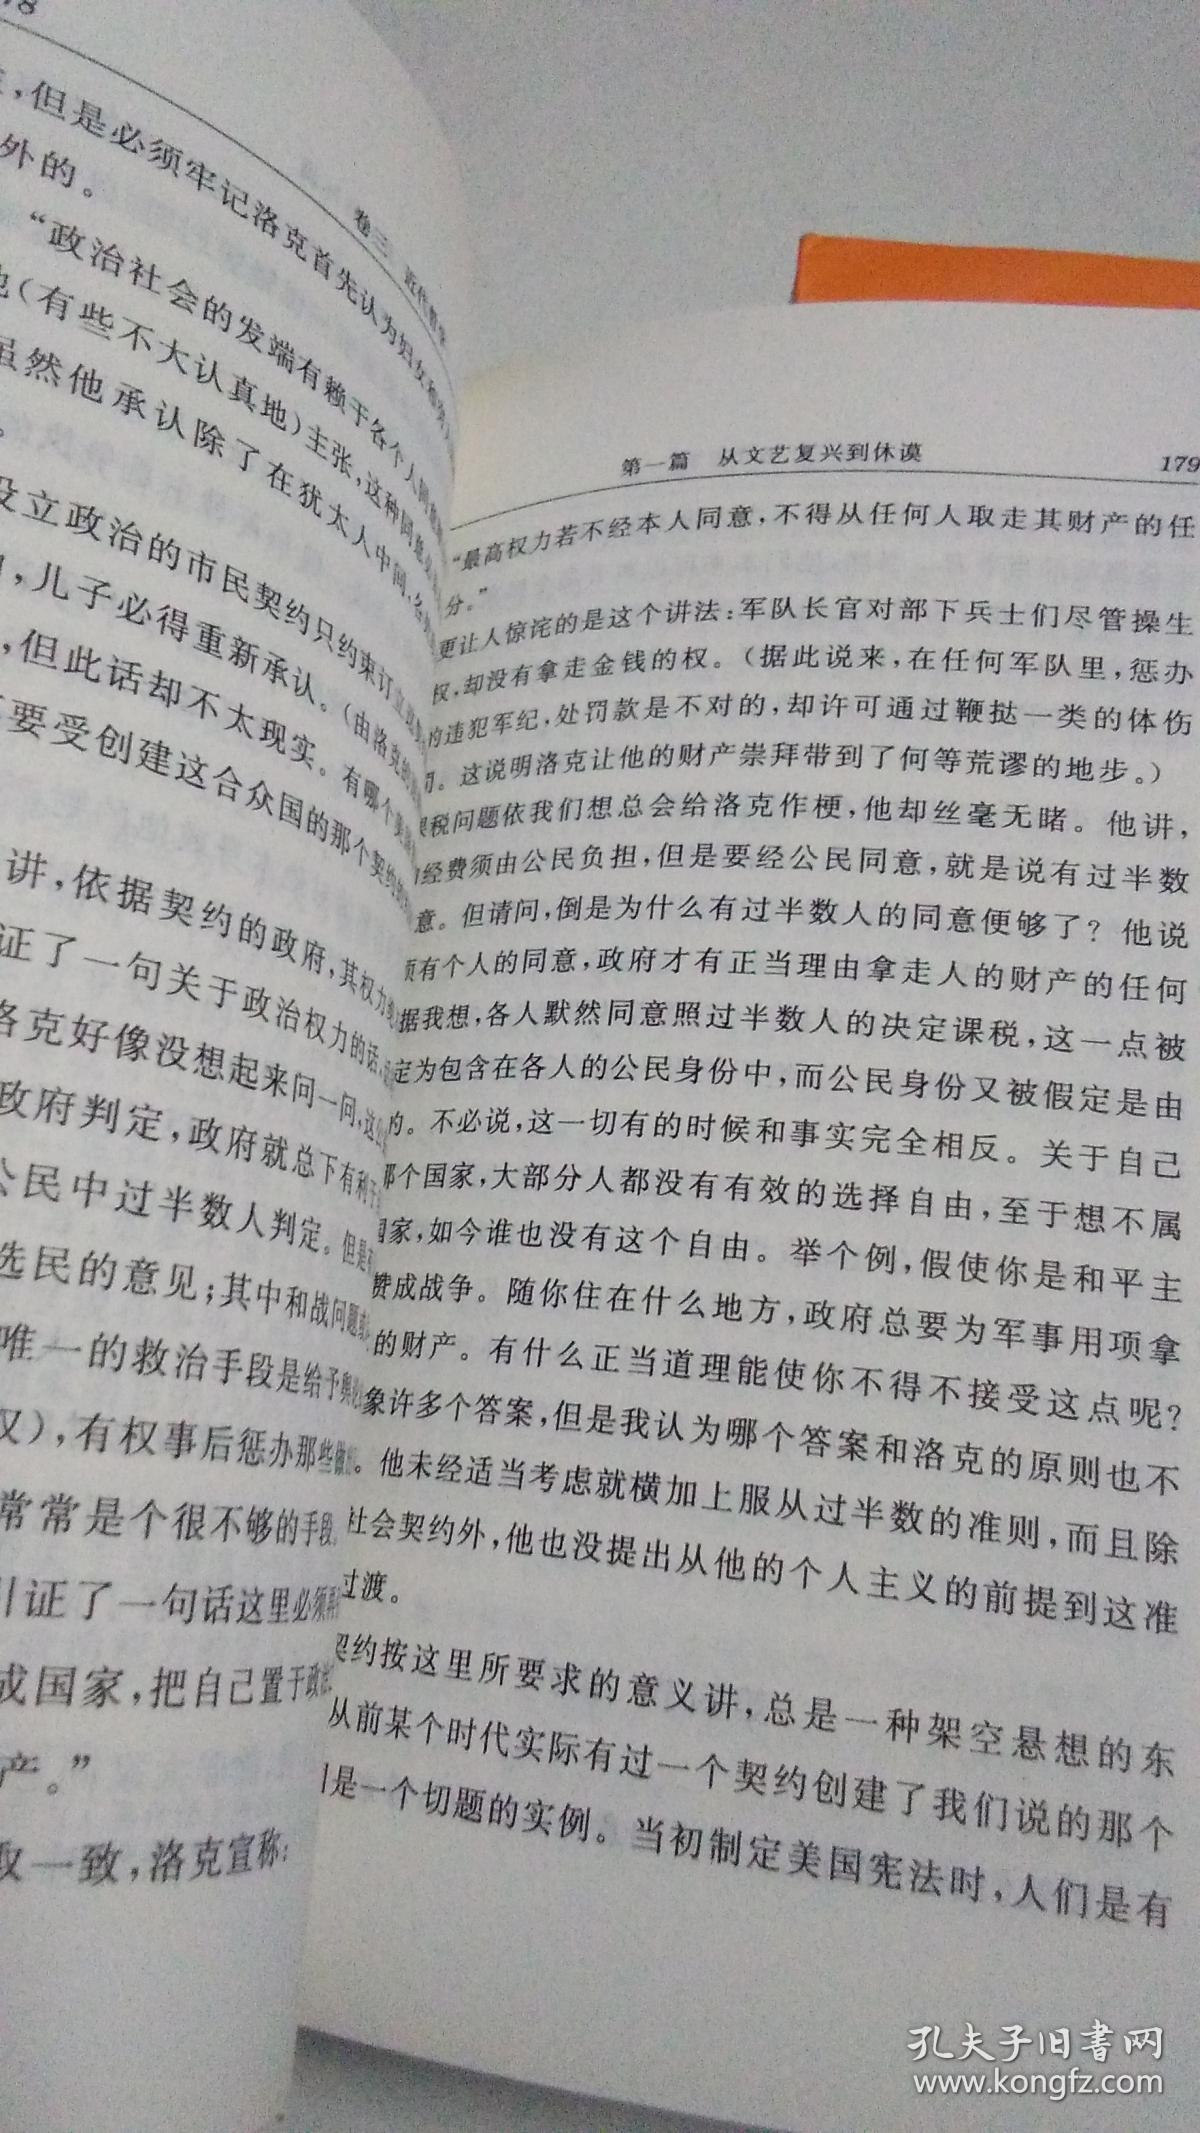 78
卷三 近代哲学
,但是必须牢记洛克首先认为妇女和穷人
外的。
“政治社会的发端有赖于各个人同意
(有些不大认真地)主张,这种同意必
虽然他承认除了在犹太人中间,各
。
设立政治的市民契约只约束订立
,儿子必得重新承认。(由洛克的
,但此话却不太现实。有哪个
要受创建这合众国的那个契约的
讲,依据契约的政府,其权力绝
证了一句关于政治权力的话,
洛克好像没想起来问一问,这
政府判定,政府就总下有利于
公民中过半数人判定。但是
选民的意见;其中和战问题
唯一的救治手段是给予舆论
权),有权事后惩办那些做
常常是个很不够的手段。
引证了一句话这里必须再
成国家,把自己置于政治
产。”
取一致,洛克宣称:
第一篇 从文艺复兴到休谟 179
“最高权力若不经本人同意,不得从任何人取走其财产的任
分。”
更让人惊诧的是这个讲法:军队长官对部下兵士们尽管操生
权,却没有拿走金钱的权。(据此说来,在任何军队里,惩办
的违犯军纪,处罚款是不对的,却许可通过鞭挞一类的体伤
。这说明洛克让他的财产崇拜带到了何等荒谬的地步。)
税问题依我们想总会给洛克作梗,他却丝毫无睹。他讲,
经费须由公民负担,但是要经公民同意,就是说有过半数
意。但请问,倒是为什么有过半数人的同意便够了?他说
须有个人的同意,政府才有正当理由拿走人的财产的任何
据我想,各人默然同意照过半数人的决定课税,这一点被
定为包含在各人的公民身份中,而公民身份又被假定是由
的。不必说,这一切有的时候和事实完全相反。关于自己
那个国家,大部分人都没有有效的选择自由,至于想不属
国家,如今谁也没有这个自由。举个例,假使你是和平主
赞成战争。随你住在什么地方,政府总要为军事用项拿
的财产。有什么正当道理能使你不得不接受这点呢?
象许多个答案,但是我认为哪个答案和洛克的原则也不
。他未经适当考虑就横加上服从过半数的准则,而且除
社会契约外,他也没提出从他的个人主义的前提到这准
过渡。
契约按这里所要求的意义讲,总是一种架空悬想的东
从前某个时代实际有过一个契约创建了我们说的那个
是一个切题的实例。当初制定美国宪法时,人们是有
孔夫子旧书网
www.kongfz.com